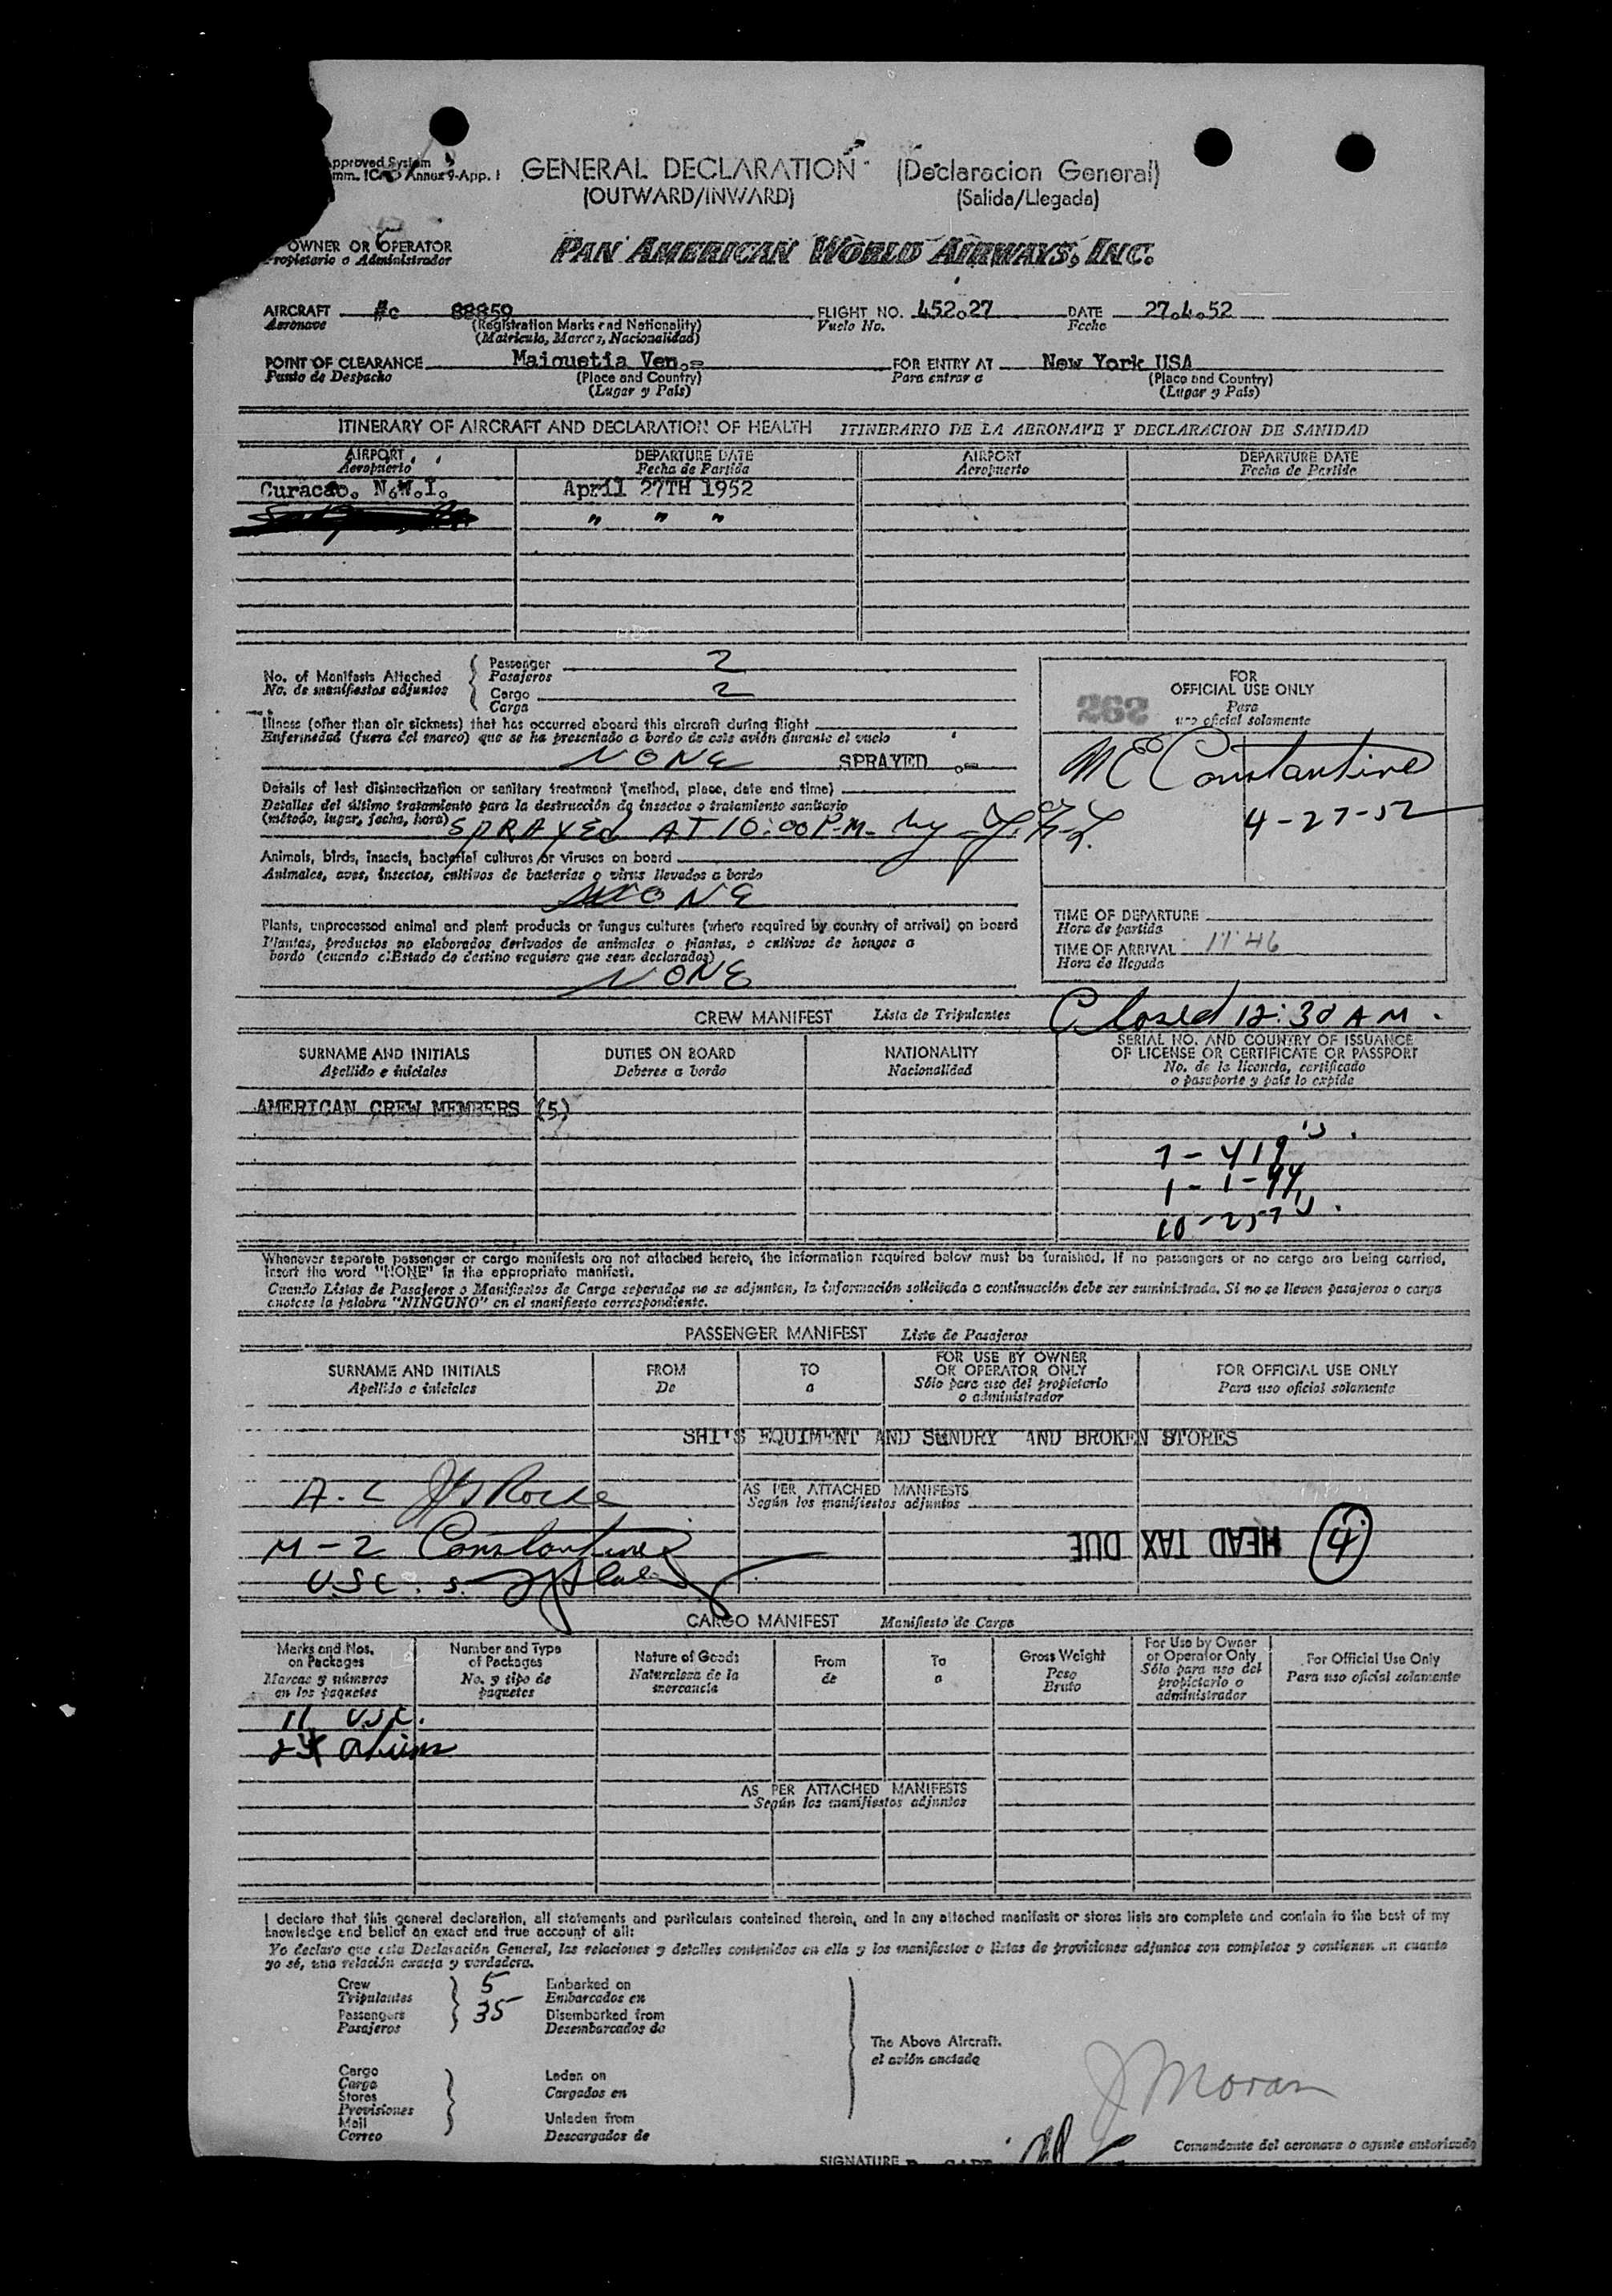 Approved System
Annex 9-App. 1
GENERAL DECLARATION (Declaracion General)
(OUTWARD/INWARD) (Salida/Llegada)
OWNER OR OPERATOR
Propietario o Administrador
PAN AMERICAN WORLD AIRWAYS, INC.
AIRCRAFT 88859 FLIGHT NO. 452.27 DATE 27.4.52
Aeronave (Registration Marks and Nationality) Vuelo No. Fecha
(Matricula, Marcas, Nacionalidad)
POINT OF CLEARANCE Maiquetia Ven. FOR ENTRY AT New York USA
Punto de Despacho (Place and Country) Para entrar a (Place and Country)
(Lugar y País) (Lugar y País)
ITINERARY OF AIRCRAFT AND DECLARATION OF HEALTH ITINERARIO DE LA AERONAVE Y DECLARACION DE SANIDAD
AIRPORT DEPARTURE DATE AIRPORT DEPARTURE DATE
Aeropuerto Fecha de Partida Aeropuerto Fecha de Partida
Curacao. N.W.I. April 27TH 1952
" " "
No. of Manifests Attached Passenger 2
No. de manifiestos adjuntos Pasajeros
Cargo 2
Carga
FOR
OFFICIAL USE ONLY
Para
uso oficial solamente
262
Illness (other than air sickness) that has occurred aboard this aircraft during flight
Enfermedad (fuera del mareo) que se ha presentado a bordo de este avión durante el vuelo
NONE SPRAYED
M E Constantine
4-27-52
Details of last disinsectization or sanitary treatment (method, place, date and time)
Detalles del último tratamiento para la destrucción de insectos o tratamiento sanitario
(método, lugar, fecha, hora) SPRAYED AT 10:00 P.M. by
Animals, birds, insects, bacterial cultures or viruses on board
Animales, aves, insectos, cultivos de bacterias o virus llevados a bordo
NONE
Plants, unprocessed animal and plant products or fungus cultures (where required by country of arrival) on board
Plantas, productos no elaborados derivados de animales o plantas, o cultivos de hongos a
bordo (cuando el Estado de destino requiere que sean declarados)
NONE
TIME OF DEPARTURE
Hora de partida
TIME OF ARRIVAL 11:46
Hora de llegada
CREW MANIFEST Lista de Tripulantes Closed 12:30 AM.
SURNAME AND INITIALS DUTIES ON BOARD NATIONALITY SERIAL NO. AND COUNTRY OF ISSUANCE
OF LICENSE OR CERTIFICATE OR PASSPORT
Apellido e iniciales Deberes a bordo Nacionalidad No. de la licencia, certificado
o pasaporte y país lo expide
AMERICAN CREW MEMBERS (5)
7 - 419's
1 - 1-94
10 - 257's
Whenever separate passenger or cargo manifests are not attached hereto, the information required below must be furnished. If no passengers or no cargo are being carried,
insert the word "NONE" in the appropriate manifest.
Cuando Listas de Pasajeros o Manifiestos de Carga separados no se adjuntan, la información solicitada a continuación debe ser suministrada. Si no se lleven pasajeros o carga
anotese la palabra "NINGUNO" en el manifiesto correspondiente.
PASSENGER MANIFEST Lista de Pasajeros
SURNAME AND INITIALS FROM TO FOR USE BY OWNER
OR OPERATOR ONLY FOR OFFICIAL USE ONLY
Apellido e iniciales De a Sólo para uso del propietario
o administrador Para uso oficial solamente
SHI'S EQUIMENT AND SUNDRY AND BROKEN STORES
AS PER ATTACHED MANIFESTS
Según los manifiestos adjuntos
M-2 Constantine
HEAD TAX DUE 4
U.S.C.
CARGO MANIFEST Manifiesto de Carga
Marks and Nos.
on Packages
Marcas y números
en los paquetes
Number and Type
of Packages
No. y tipo de
paquetes
Nature of Goods
Naturaleza de la
mercancía
From
de
To
a
Gross Weight
Peso
Bruto
For Use by Owner
or Operator Only
Sólo para uso del
propietario o
administrador
For Official Use Only
Para uso oficial solamente
11 U.S.C.
24 aliens
AS PER ATTACHED MANIFESTS
Según los manifiestos adjuntos
I declare that this general declaration, all statements and particulars contained therein, and in any attached manifests or stores lists are complete and contain to the best of my
knowledge and belief an exact and true account of all:
Yo declaro que esta Declaración General, las relaciones y detalles contenidos en ella y los manifiestos o listas de provisiones adjuntos son completos y contienen en cuanto
yo sé, una relación exacta y verdadera.
Crew 5 Embarked on
Tripulantes Embarcados en
Passengers 35 Disembarked from
Pasajeros Desembarcados de
The Above Aircraft.
el avión anotado
Cargo
Carga
Stores
Provisiones
Mail
Correo
Laden on
Cargados en
Unladen from
Descargados de
J Moran
Comandante del aeronave o agente autorizado
SIGNATURE